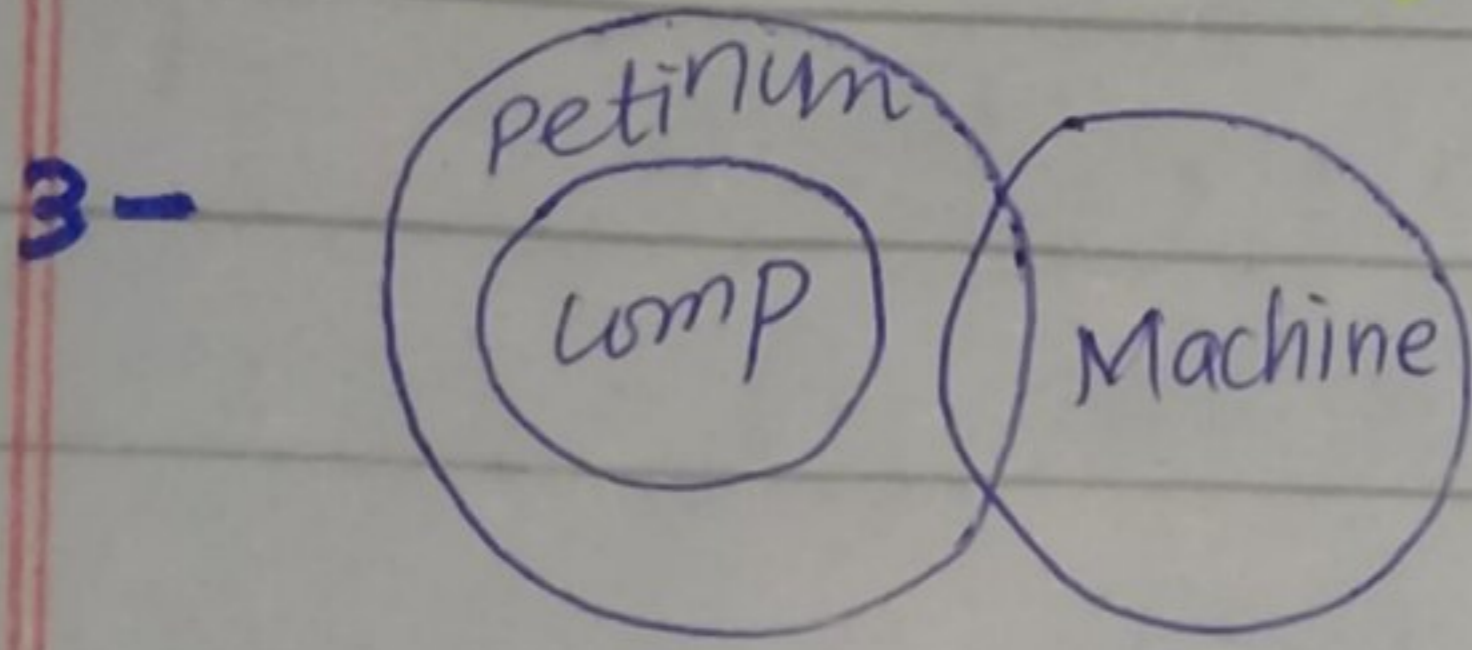 3-
Petinum
comp
Machine